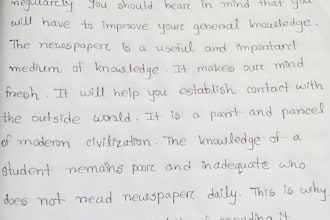 regularly You should bear in mind that you
will have to improve your general knowledge.
The newspaper is a useful and important
medium of knowledge. It makes our mind
fresh. It will help you establish contact with
the outside world. It is a part and parcel
of modern civilization. The knowledge of a
student remains poor and inadequate who
does not read newspaper daily. This is why
reading it